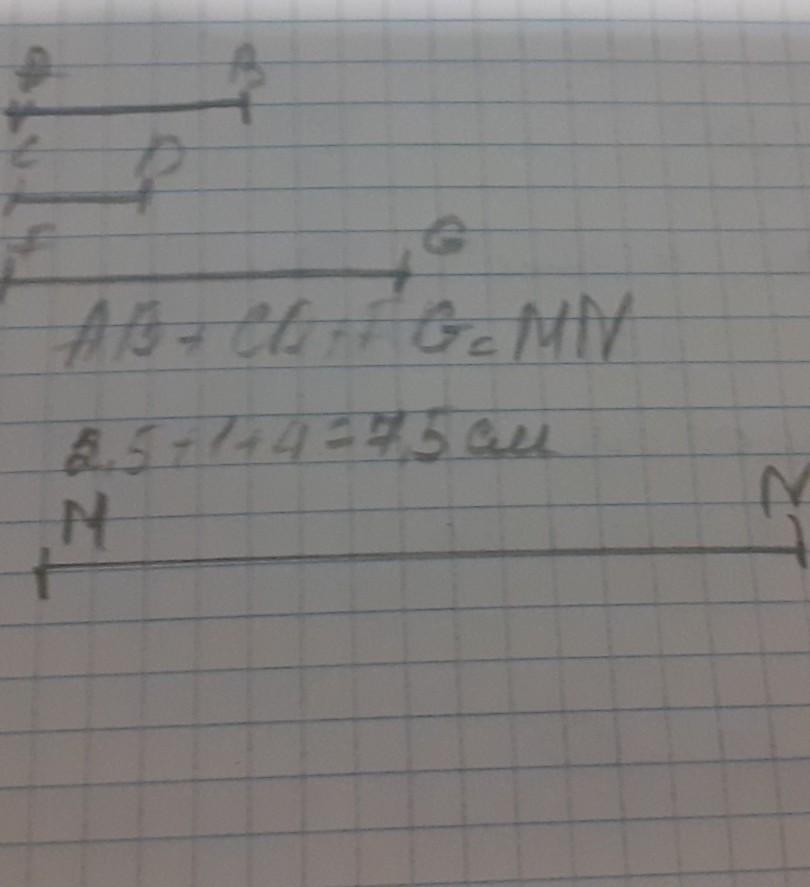 A B
C D
F G
AB + CD + FG = MN
2.5 + 1 + 4 = 7,5 см
M N